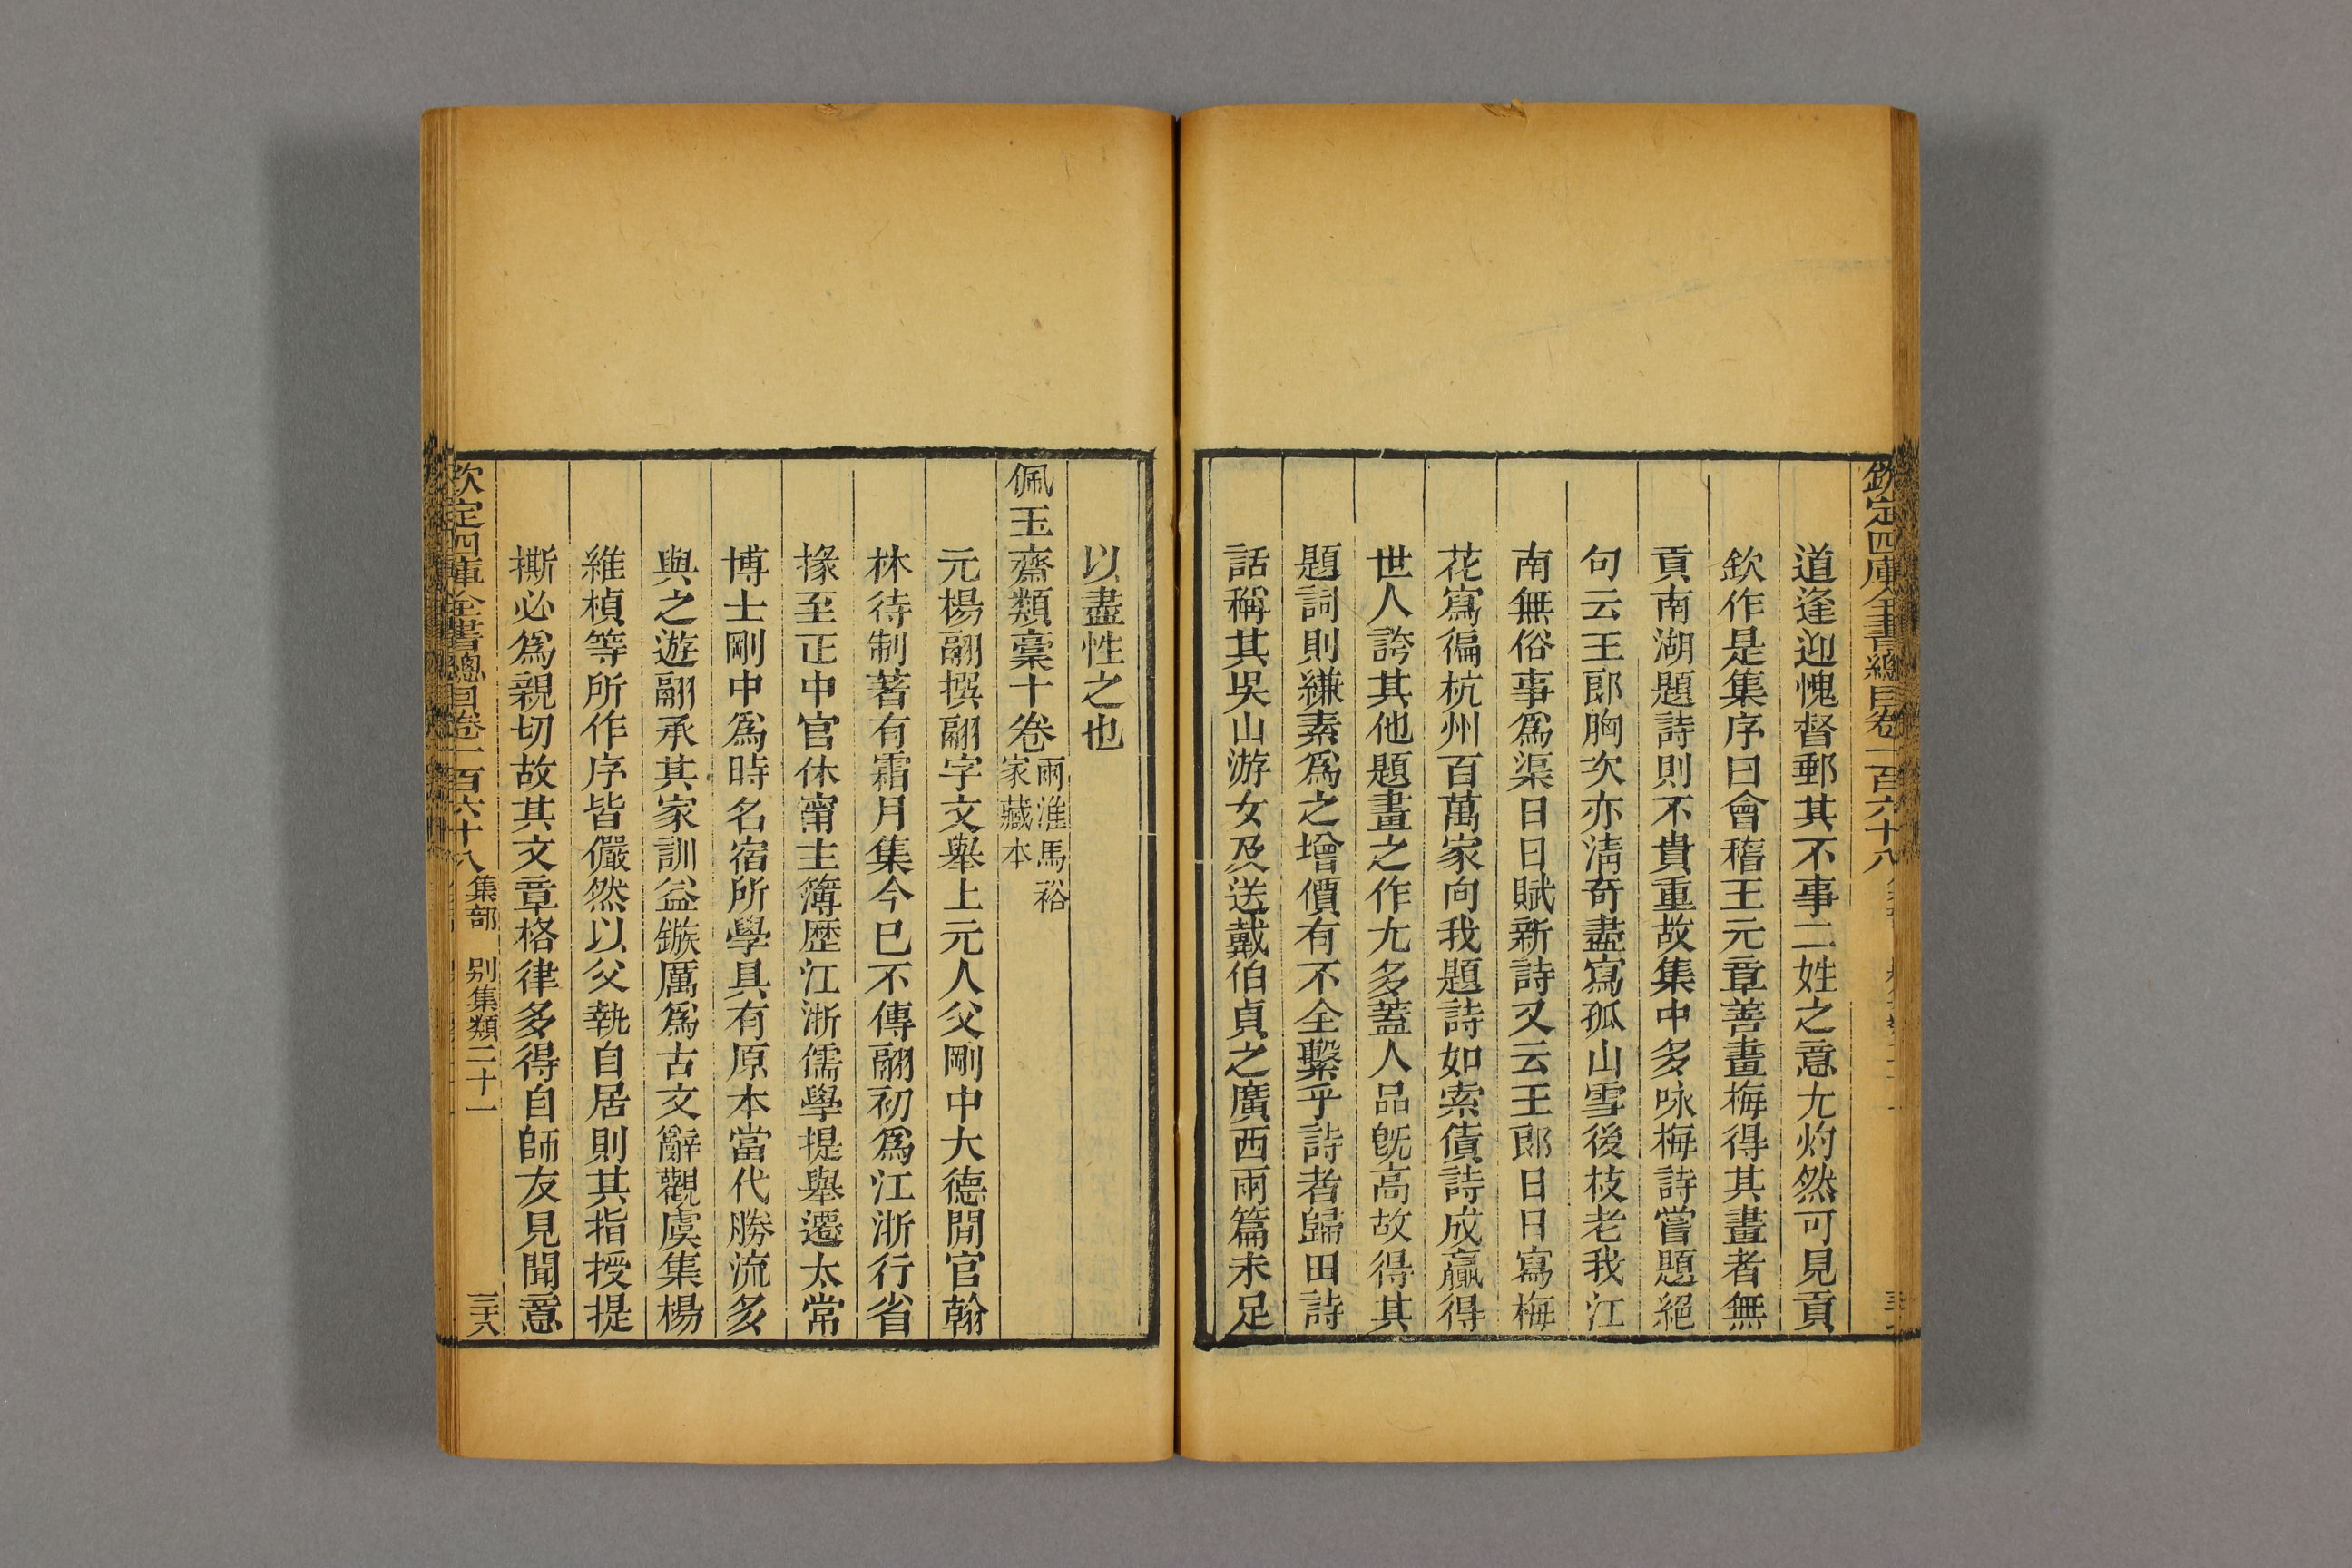 欽定四庫全書總目卷一百六十八
道逢迎愧督郵其不事二姓之意尤灼然可見貢
欽作是集序曰會稽王元章善畫梅得其畫者無
貢南湖題詩則不貴重故集中多咏梅詩嘗題絕
句云王郎胸次亦淸奇盡寫孤山雪後枝老我江
南無俗事爲渠日日賦新詩又云王郎日日寫梅
花寫徧杭州百萬家向我題詩如索債詩成贏得
世人誇其他題畫之作尤多蓋人品旣高故得其
題詞則縑素爲之增價有不全繫乎詩者歸田詩
話稱其吳山游女及送戴伯貞之廣西兩篇未足
以盡性之也
佩玉齋類藁十卷兩淮馬裕家藏本
元楊翮撰翮字文舉上元人父剛中大德閒官翰
林待制著有霜月集今已不傳翮初爲江浙行省
掾至正中官休甯主簿歴江浙儒學提舉遷太常
博士剛中爲時名宿所學具有原本當代勝流多
與之遊翮承其家訓益鏃厲爲古文辭觀虞集楊
維楨等所作序皆儼然以父執自居則其指授提
撕必爲親切故其文章格律多得自師友見聞意
欽定四庫全書總目卷一百六十八 集部 别集類二十一 三六